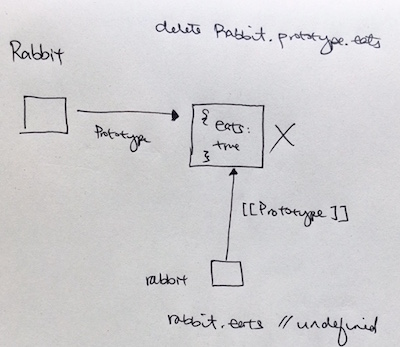 delete Rabbit.prototype.eats
Rabbit
{ eats:
true
}
X
Prototype
[[Prototype]]
rabbit
rabbit.eats // undefined